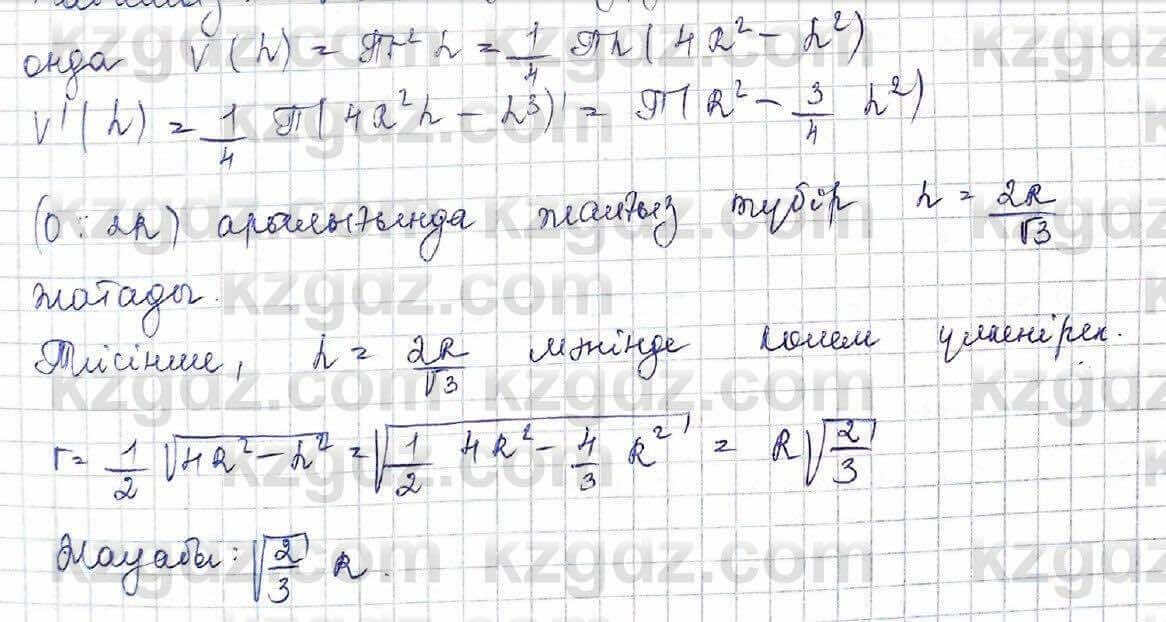 онда V(h) = πr² h = 1/4 πh(4R² − h²)
V'(h) = 1/4 π(4R²h − h³)' = π(R² − 3/4 h²)
(0; 2R) аралығында жалғыз түбір h = 2R/√3
жатады.
Тиісінше, h = 2R/√3 мәнінде көлем үлкенірек.
r = 1/2 √(4R² − h²) = √(1/2 4R² − 4/3 R²) = R√(2/3)
Жауабы: √(2/3) R.
kzgdz.com